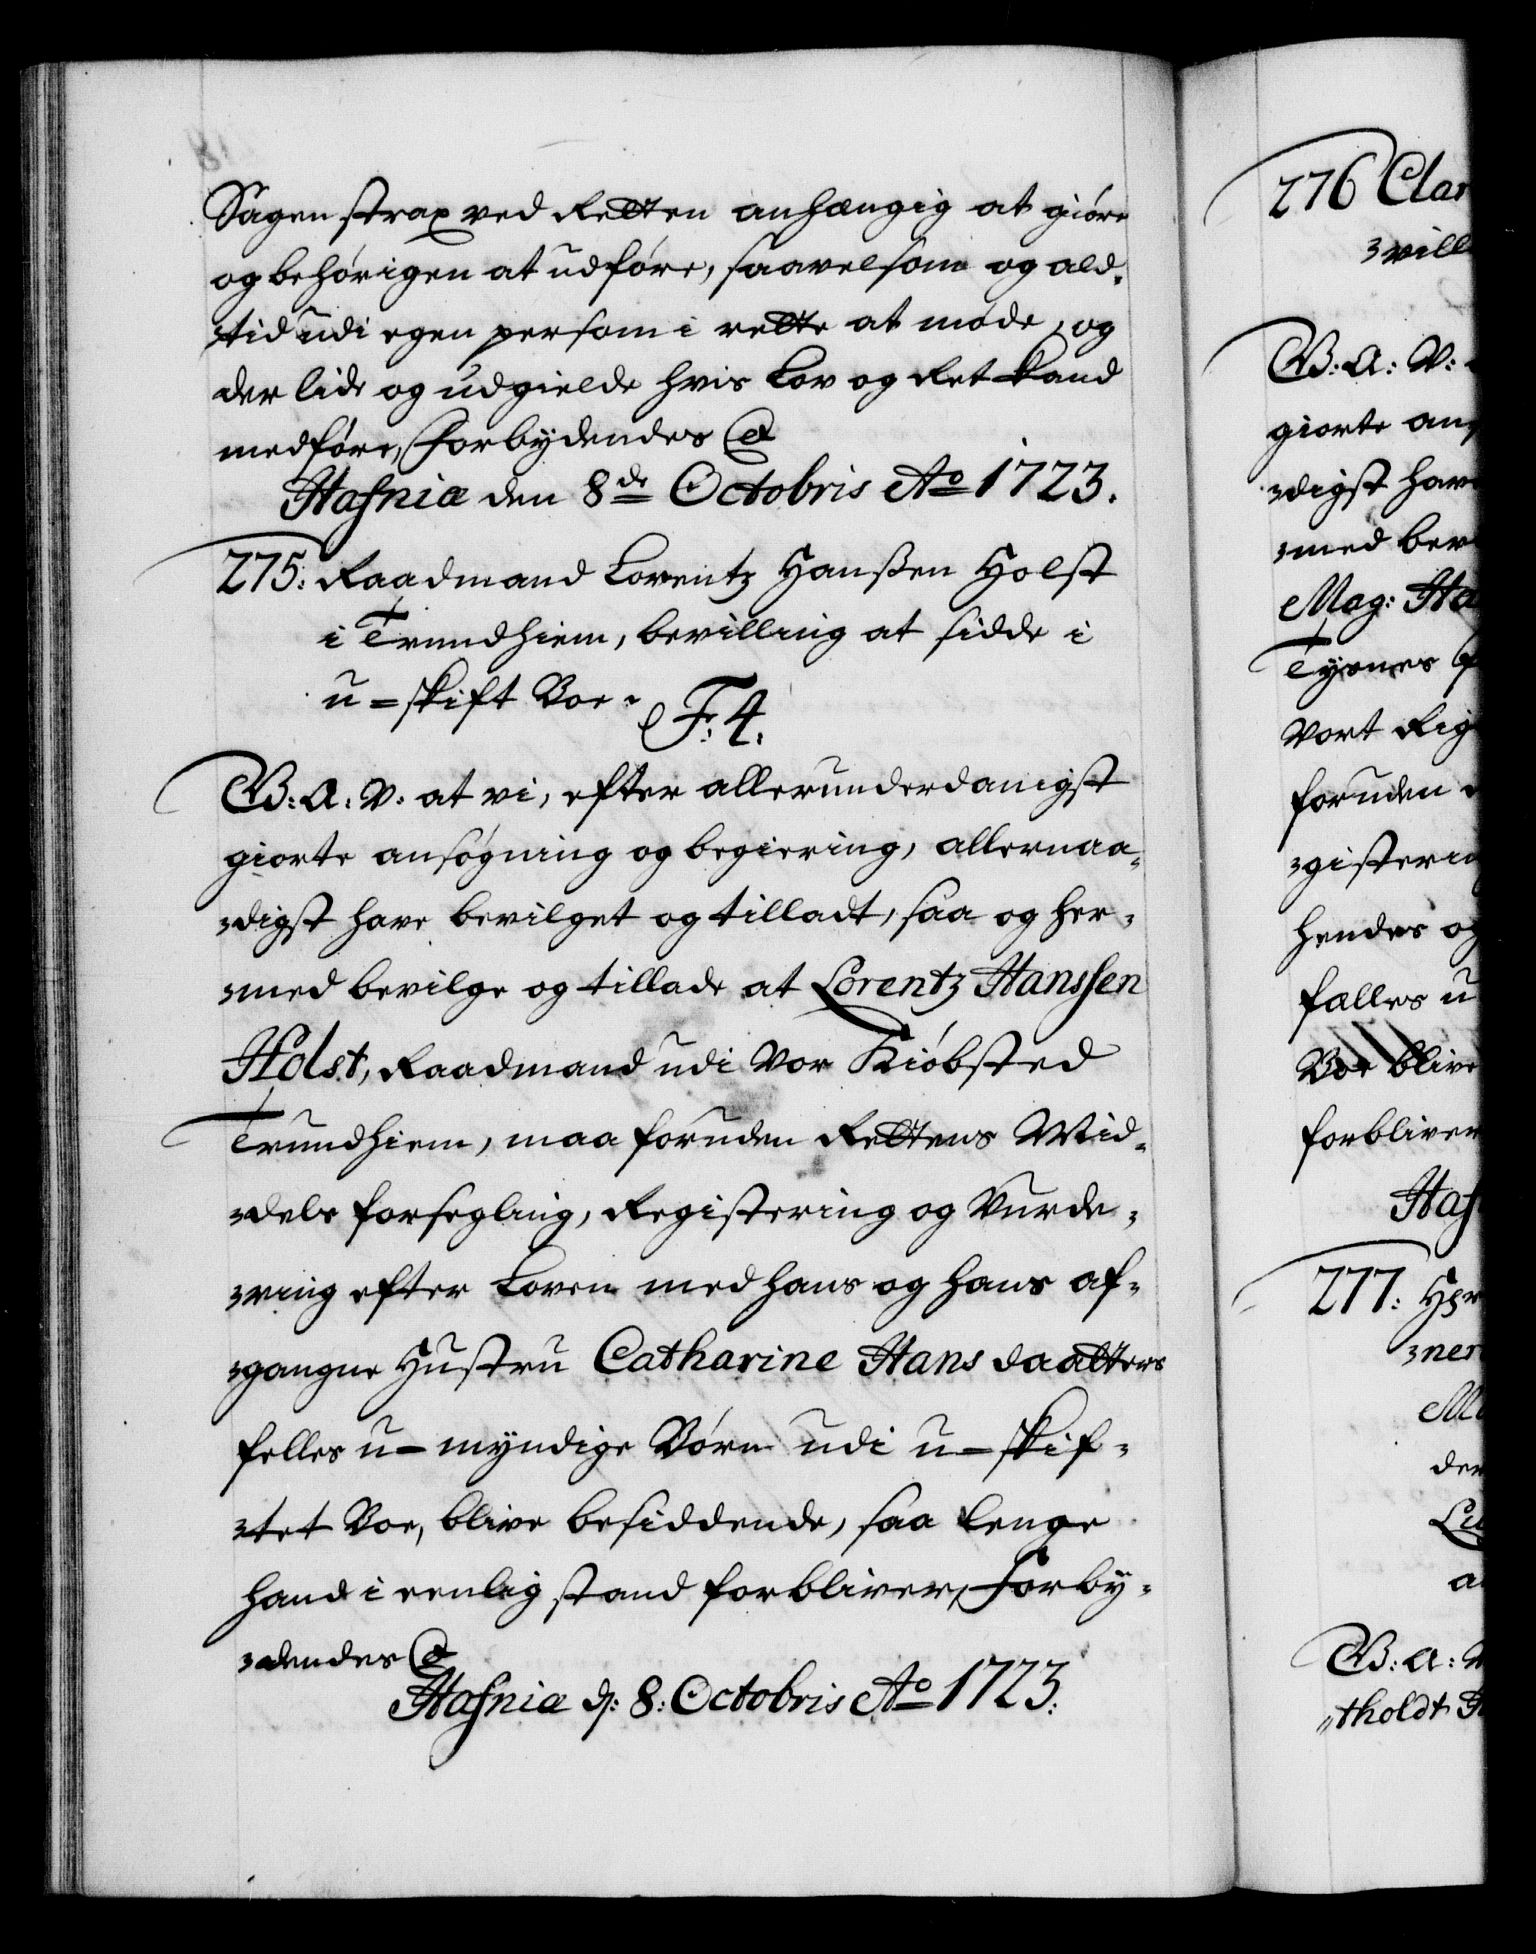 Sagen strax ved Retten anhængig at giöre
og behörigen at udföre, saavelsom og ald¬
tid udi egen person i rette at møde, og
der lide og udgielde hvis Lov og Ret kand
medföre, Forbydendes &
Hafniæ den 8de Octobris Ao 1723.
275: Raadmand Lorentz Hanßen Holst
i Trundhiem, bevilling at sidde i
u-skift Boe.
F. 4.
G: A: V: at vi, efter allerunderdanigst
giorte ansögning og begiering, allernaa¬
digst have bevilget og tilladt, saa og her¬
med bevilge og tillade at Lorentz Hanssen
Holst, Raadmand udi Vor Kiöbsted
Trundhiem, maa foruden Rettens Mid¬
dels forsegling, Registering og Vurde¬
ring efter Loven med hans og hans af¬
gangne Hustru Catharine Hans daatters
felles u-myndige Börn udi u-skif¬
tet Boe, blive besiddende, saa lenge
hand i eenlig stand forbliver, Forby¬
dendes &
Hafniæ d: 8: Octobris Ao 1723.
276 Clar
vill
G: A: V:
giorte an
digst hav
med bev
Mag: Ha
Tysnes
Vort Rig
foruden
gisterin
hendes og
fælles u
Boe blive
forbliver
Haf
277: Hr
ner
den
G: A: V
tholdt